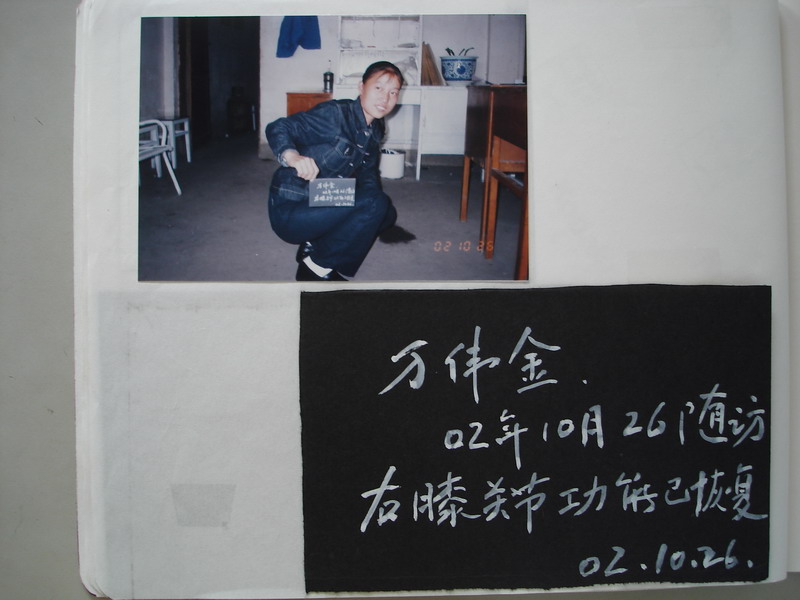 02 10 26
万伟金.
02年10月26随访
右膝关节功能已恢复
02.10.26.